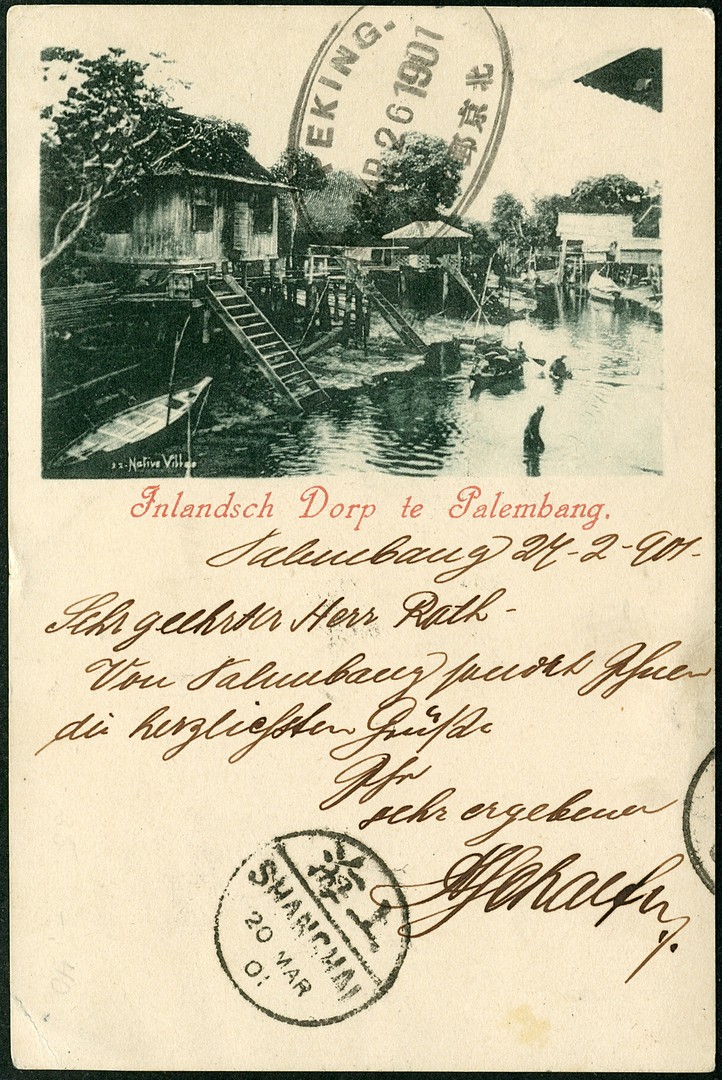 PEKING.
MAR 26 1901
北京郵
22-Native Village
Inlandsch Dorp te Palembang.
Palembang 24-2-901-
Sehr geehrter Herr Rath-
Von Palembang sendet Ihnen
die herzlichsten Grüße
Ihr
sehr ergebener
SHANGHAI
20 MAR
01